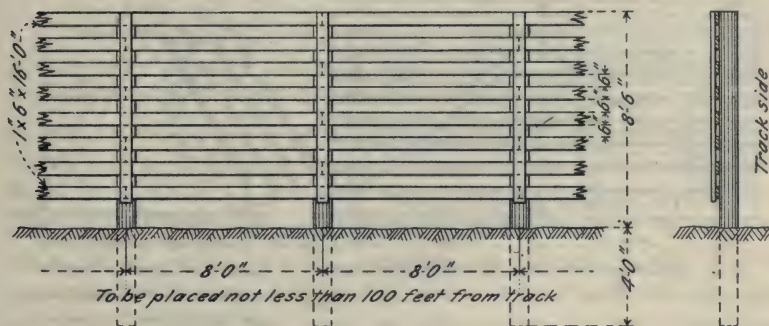 1" x 6" x 16'-0"
*6"*6"*6"*
8'-6"
Track side
8'-0"
8'-0"
4'-0"
To be placed not less than 100 feet from track